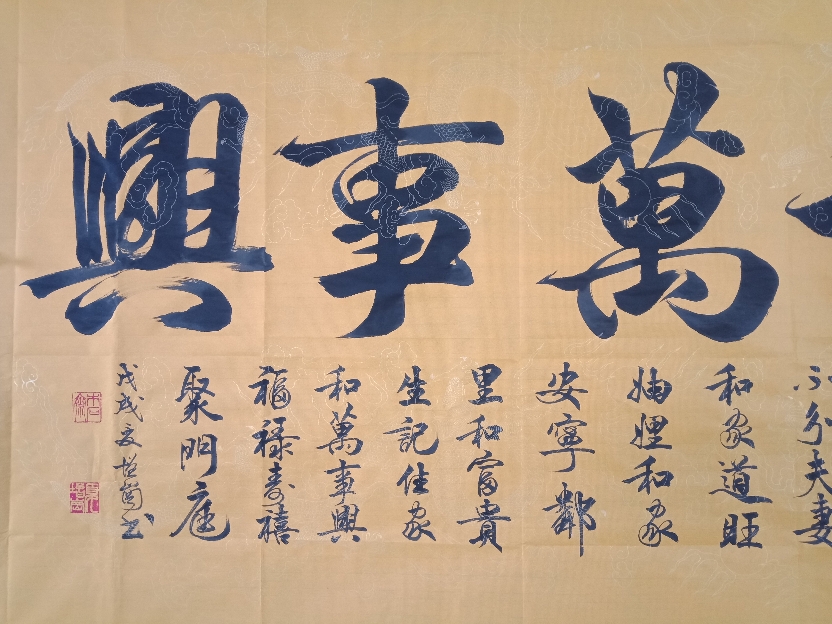 萬事興
不分夫妻
和家道旺
妯娌和家
安寧鄰
里和富貴
生記住家
和萬事興
福祿壽禧
聚門庭
戊戌夏增书